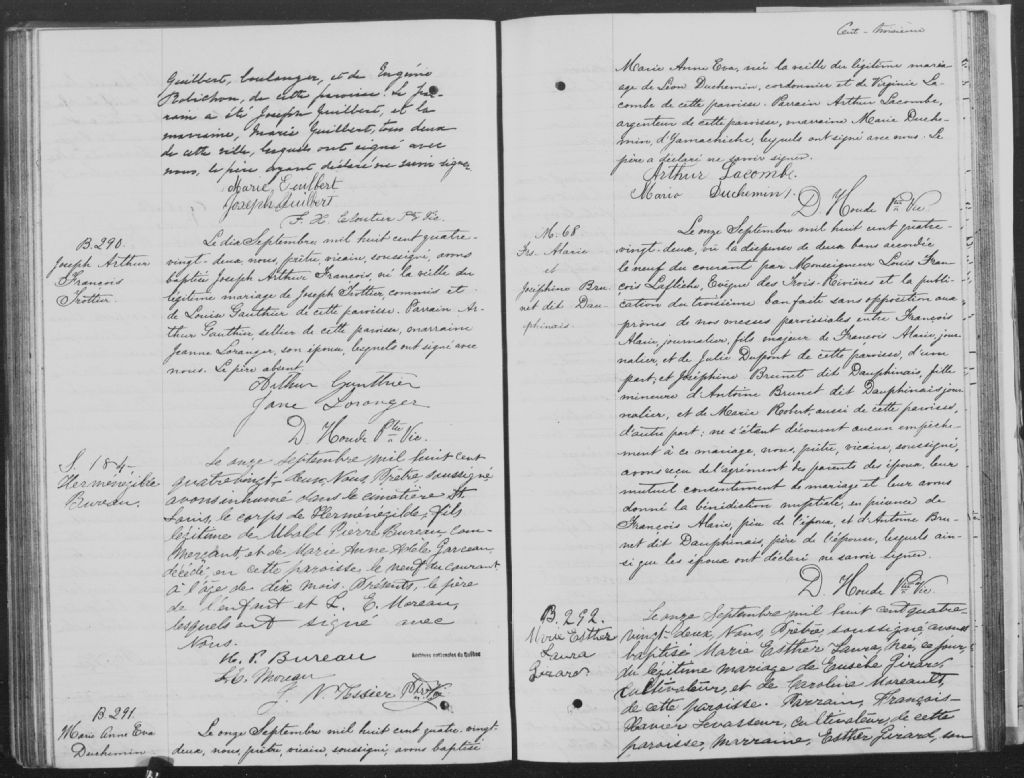 Guilbert, boulanger, et de Eugénie
Robichon, de cette paroisse. Le par-
rain a été Joseph Guilbert, et la
marraine, Marie Guilbert, tous deux
de cette ville, lesquels ont signé avec
nous, le père ayant déclaré ne savoir signer.
Marie Guilbert
Joseph Guilbert
F. X. Cloutier Ptre Vic.
B. 290.
Joseph Arthur
François
Trottier.
Le dix Septembre mil huit cent quatre-
vingt-deux, nous, prêtre, vicaire, soussigné, avons
baptisé Joseph Arthur François, né la veille du
légitime mariage de Joseph Trottier, commis et
de Louise Gauthier de cette paroisse. Parrain Ar-
thur Gauthier, sellier de cette paroisse, marraine
Jeanne Loranger, son épouse, lesquels ont signé avec
nous. Le père absent.
Arthur Gauthier
Jane Loranger
D. Houde Ptre Vic.
S. 184.
Herménégilde
Bureau.
Le onze Septembre mil huit cent
quatrevingt-deux, Nous, Prêtre, soussigné
avons inhumé dans le cimetière St
Louis, le corps de Herménégilde, fils
légitime de Ubald Pierre Bureau Com-
merçant, et de Marie Anne Adèle Garceau
décédé, en cette paroisse, le neuf du courant
à l'âge de dix mois. Présents, le père
de l'enfant et L. E. Moreau,
lesquels ont signé avec
Nous.
U. P. Bureau
L. E. Moreau
Archives nationales du Québec
B 291
Marie Anne Eva
Duchemin
Le onze Septembre mil huit cent quatre-vingt-
deux, nous, prêtre, vicaire, soussigné, avons baptisé
Cent-troisième
Marie Anne Eva, née la veille du légitime maria-
ge de Léon Duchemin, cordonnier et de Virginie La-
combe de cette paroisse. Parrain Arthur Lacombe,
argenteur de cette paroisse, marraine Marie Duche-
min, d'Yamachiche, lesquels ont signé avec nous. Le
père a déclaré ne savoir signer.
Arthur Lacombe.
Marie Duchemin.
D. Houde Ptre Vic.
M. 68
Frs. Alarie
et
Joséphine Bru-
net dit Dau-
phinais.
Le onze Septembre mil huit cent quatre-
vingt-deux, vu la dispense de deux bans accordée
le neuf du courant par Monseigneur Louis Fran-
çois Laflèche, Evêque des Trois-Rivières et la publi-
cation du troisième ban faite sans opposition aux
prônes de nos messes paroissiales entre François
Alarie, journalier, fils majeur de François Alarie, jour-
nalier, et de Julie Dupont de cette paroisse, d'une
part, et Joséphine Brunet dit Dauphinais, fille
mineure d'Antoine Brunet dit Dauphinais jour-
nalier, et de Marie Robert, aussi de cette paroisse,
d'autre part; ne s'étant découvert aucun empêche-
ment à ce mariage, nous, prêtre, vicaire, soussigné,
avons reçu de l'agrément des parents des époux, leur
mutuel consentement de mariage et leur avons
donné la bénédiction nuptiale, en présence de
François Alarie, père de l'époux, et d'Antoine Bru-
net dit Dauphinais, père de l'épouse, lesquels ain-
si que les époux ont déclaré ne savoir signer.
D. Houde Ptre Vic.
B. 292.
Marie Esther
Laura
Girard.
Le onze Septembre mil huit cent quatre-
vingt-deux, Nous, Prêtre, soussigné, avons
baptisé Marie Esther Laura, née, ce jour,
du légitime mariage de Eusèbe Girard,
Cultivateur, et de Carolina Marcault,
de cette paroisse. Parrain, François-
Xavier Levasseur, cultivateur, de cette
paroisse, marraine, Esther Girard, son